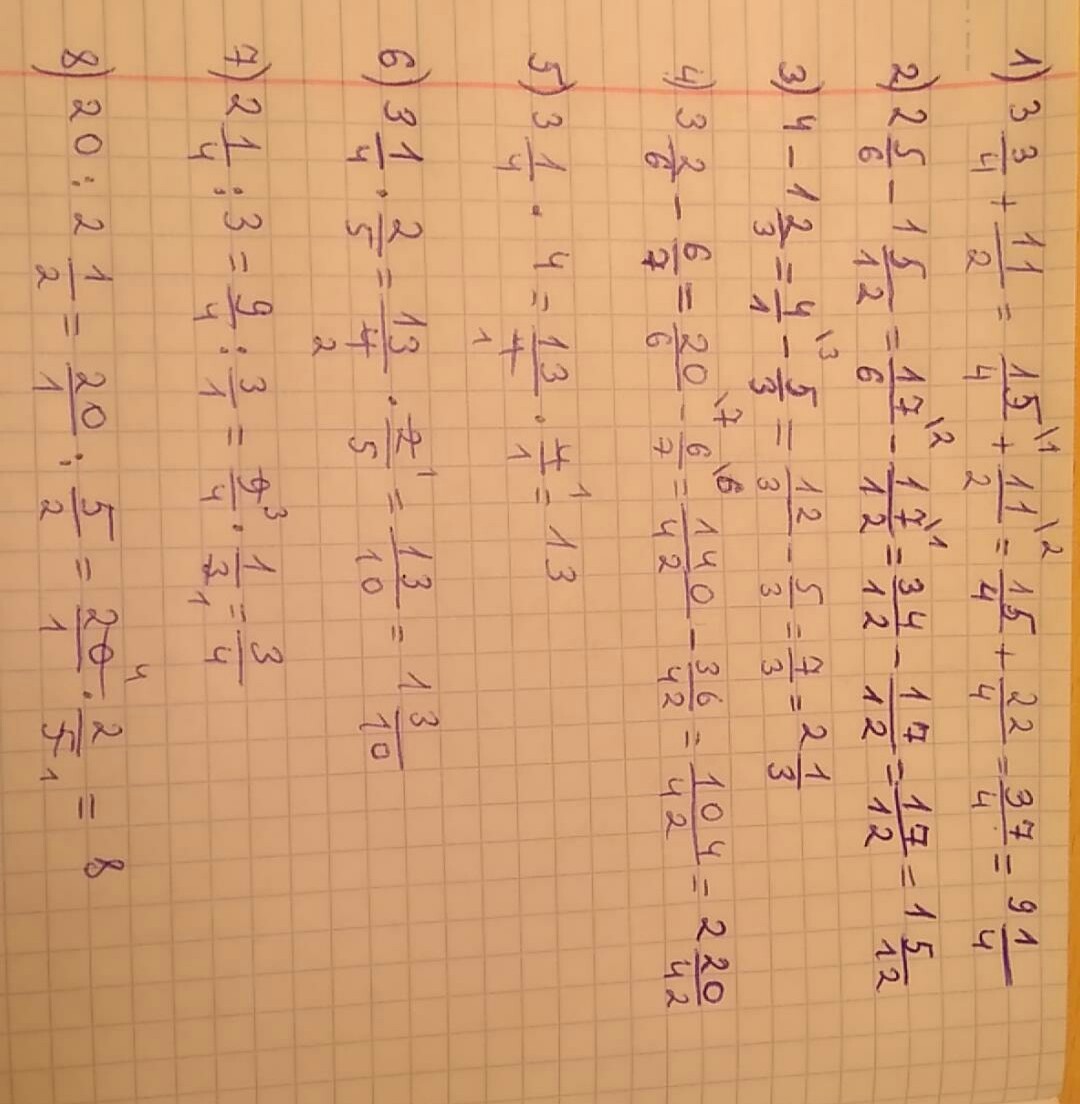 1) 3 3/4 + 11/2 = 15\1/4 + 11\2/2 = 15/4 + 22/4 = 37/4 = 9 1/4
2) 2 5/6 - 1 5/12 = 17\2/6 - 17\1/12 = 34/12 - 17/12 = 17/12 = 1 5/12
3) 4 - 1 2/3 = 4\3/1 - 5/3 = 12/3 - 5/3 = 7/3 = 2 1/3
4) 3 2/6 - 6/7 = 20\7/6 - 6\6/7 = 140/42 - 36/42 = 104/42 = 2 20/42
5) 3 1/4 · 4 = 13/4 1 · 4 1/1 = 13
6) 3 1/4 · 2/5 = 13/4 2 · 2 1/5 = 13/10 = 1 3/10
7) 2 1/4 : 3 = 9/4 : 3/1 = 9 3/4 · 1/3 1 = 3/4
8) 20 : 2 1/2 = 20/1 : 5/2 = 20 4/1 · 2/5 1 = 8